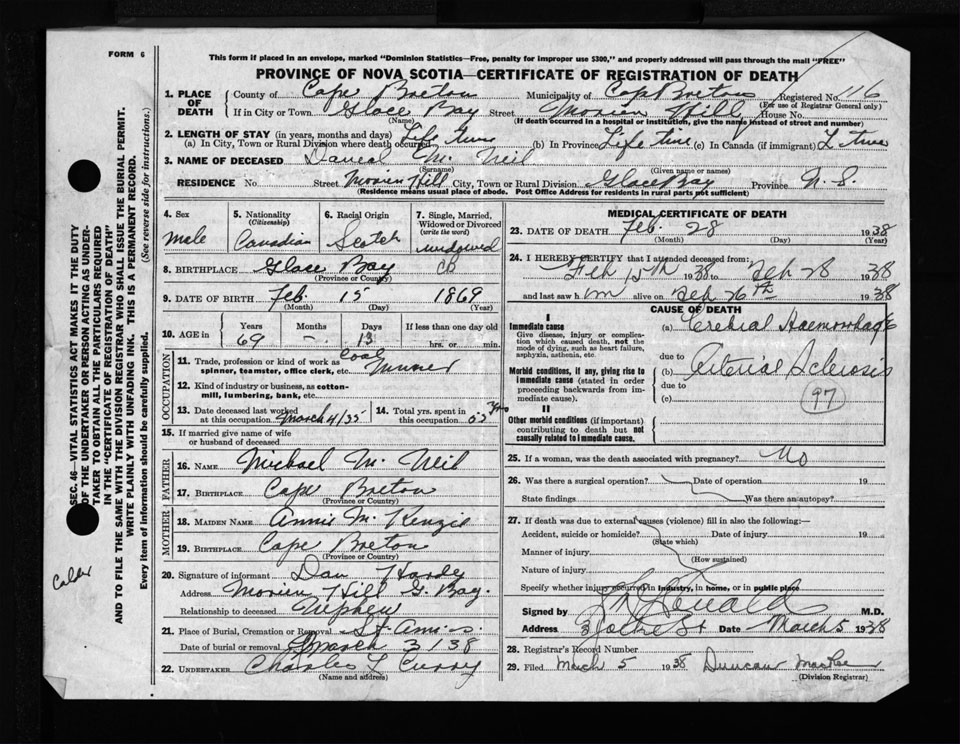 FORM 6
This form if placed in an envelope, marked "Dominion Statistics—Free, penalty for improper use $300," and properly addressed will pass through the mail "FREE"
PROVINCE OF NOVA SCOTIA—CERTIFICATE OF REGISTRATION OF DEATH
1. PLACE OF DEATH County of Cape Breton Municipality of Cape Breton Registered No. 116
(For use of Registrar General only)
If in City or Town Glace Bay Street Morien Hill House No.
(Name) (If death occurred in a hospital or institution, give the name instead of street and number)
2. LENGTH OF STAY (in years, months and days)
(a) In City, Town or Rural Division where death occurred Life time (b) In Province Life time (c) In Canada (if immigrant) L time
3. NAME OF DECEASED Daneal Mc Neil
(Surname) (Given name or names)
RESIDENCE No. Street Morien Hill City, Town or Rural Division Glace Bay Province N.S.
(Residence means usual place of abode. Post Office Address for residents in rural parts not sufficient)
4. Sex 5. Nationality (Citizenship) 6. Racial Origin 7. Single, Married, Widowed or Divorced (write the word)
male Canadian Scotch widowed
8. BIRTHPLACE Glace Bay CB
(Province or Country)
9. DATE OF BIRTH Feb. 15 1869
(Month) (Day) (Year)
10. AGE in Years Months Days If less than one day old
69 — 13 hrs. or min.
OCCUPATION
11. Trade, profession or kind of work as spinner, teamster, office clerk, etc. Coal Minner
12. Kind of industry or business, as cotton-mill, lumbering, bank, etc.
13. Date deceased last worked at this occupation March 4/35 14. Total yrs. spent in this occupation 52 yrs
15. If married give name of wife or husband of deceased
FATHER
16. NAME Michael Mc Neil
17. BIRTHPLACE Cape Breton
(Province or Country)
MOTHER
18. MAIDEN NAME Annie Mc Kenzie
19. BIRTHPLACE Cape Breton
(Province or Country)
20. Signature of informant Dan Hardy
Address Morien Hill G. Bay.
Relationship to deceased Nephew
21. Place of Burial, Cremation or Removal St. Ann's.
Date of burial or removal March 3/38
22. UNDERTAKER Charles L Curry
(Name and address)
MEDICAL CERTIFICATE OF DEATH
23. DATE OF DEATH Feb. 28 1938
(Month) (Day) (Year)
24. I HEREBY CERTIFY that I attended deceased from:
Feb 15th 1938 to Feb 28 1938
and last saw him alive on Feb 26th 1938
CAUSE OF DEATH
I
Immediate cause
Give disease, injury or complication which caused death, not the mode of dying, such as heart failure, asphyxia, asthenia, etc.
(a) Cerebral Haemorrhage
due to
Morbid conditions, if any, giving rise to immediate cause (stated in order proceeding backwards from immediate cause).
(b) Arterial Sclerosis
due to
(c) 97
II
Other morbid conditions (if important) contributing to death but not causally related to immediate cause.
25. If a woman, was the death associated with pregnancy? No
26. Was there a surgical operation? Date of operation 19
State findings Was there an autopsy?
27. If death was due to external causes (violence) fill in also the following:—
Accident, suicide or homicide? Date of injury 19
(State which)
Manner of injury
(How sustained)
Nature of injury
Specify whether injury occurred in industry, in home, or in public place
Signed by M.D.
Address Date March 5 1938
28. Registrar's Record Number
29. Filed March 5 1938 Duncan MacRae
(Division Registrar)
SEC. 46—VITAL STATISTICS ACT MAKES IT THE DUTY
OF THE UNDERTAKER OR PERSON ACTING AS UNDER-
TAKER TO OBTAIN ALL THE PARTICULARS REQUIRED
IN THE "CERTIFICATE OF REGISTRATION OF DEATH"
AND TO FILE THE SAME WITH THE DIVISION REGISTRAR WHO SHALL ISSUE THE BURIAL PERMIT.
WRITE PLAINLY WITH UNFADING INK. THIS IS A PERMANENT RECORD.
Every item of information should be carefully supplied. (See reverse side for instructions.)